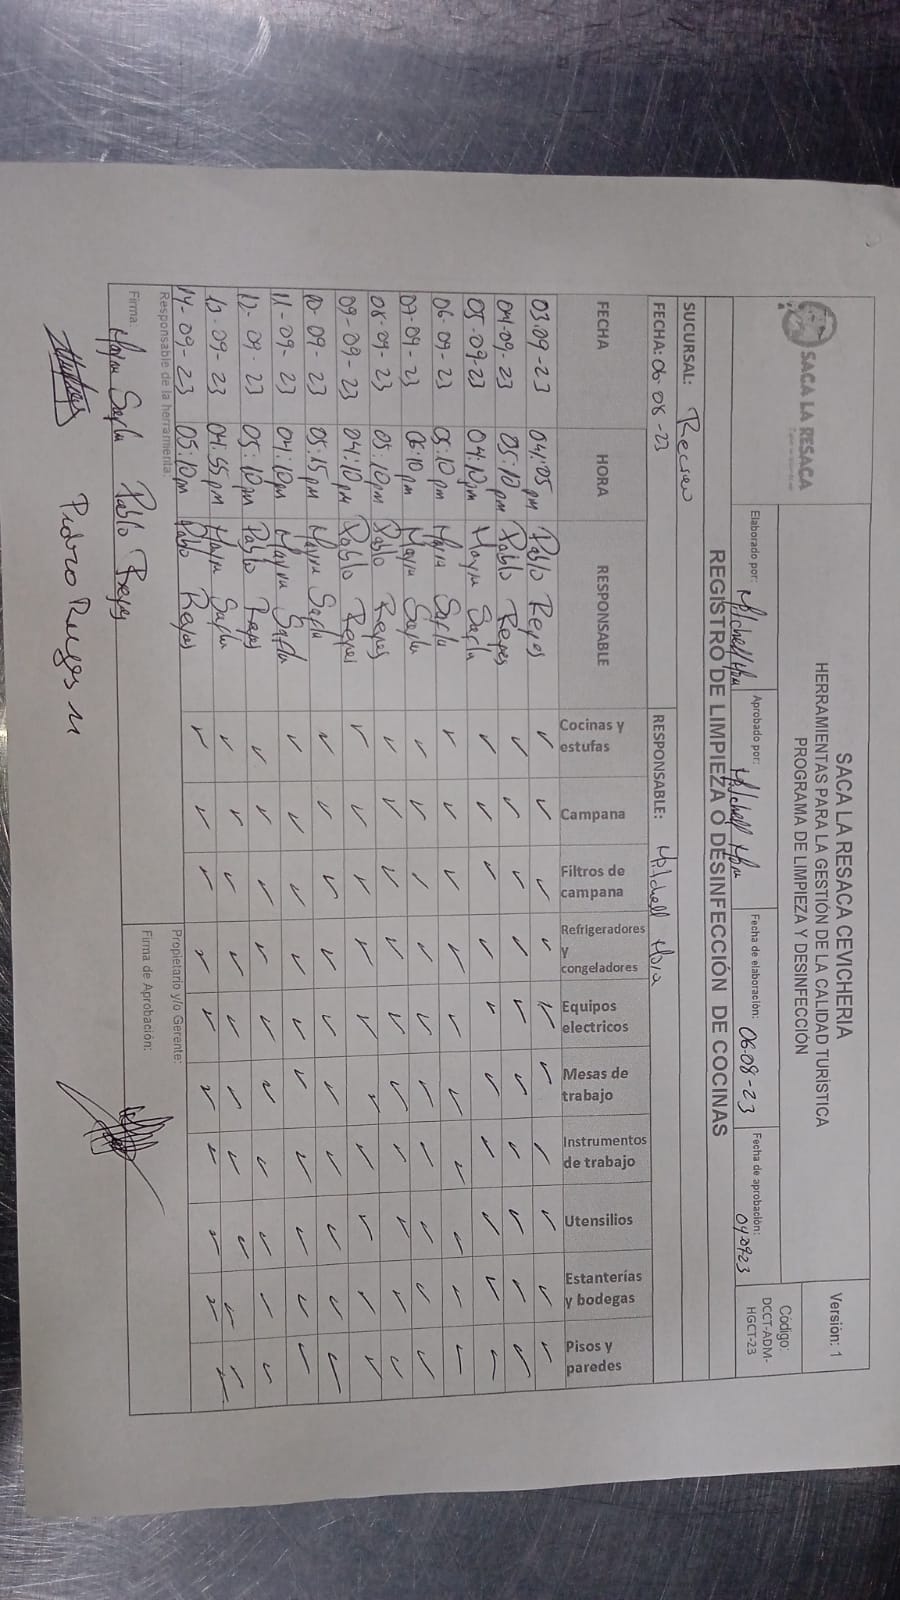 SACA LA RESACA
SACA LA RESACA CEVICHERIA
HERRAMIENTAS PARA LA GESTIÓN DE LA CALIDAD TURISTICA
PROGRAMA DE LIMPIEZA Y DESINFECCIÓN
Versión: 1
Código:
DCCT-ADM-
HGCT-23
Elaborado por: Mitchell Mora
Aprobado por: Mitchell Mora
Fecha de elaboración: 06-08-23
Fecha de aprobación:
REGISTRO DE LIMPIEZA O DESINFECCIÓN DE COCINAS
SUCURSAL: Recreo
FECHA: 06-08-23 RESPONSABLE: Mitchell Mora
FECHA HORA RESPONSABLE Cocinas y estufas Campana Filtros de campana Refrigeradores y congeladores Equipos electricos Mesas de trabajo Instrumentos de trabajo Utensilios Estanterías y bodegas Pisos y paredes
03-09-23 04:05 pm Pablo Reyes ✓ ✓ ✓ ✓ ✓ ✓ ✓ ✓ ✓ ✓
04-09-23 05:10 pm Pablo Reyes ✓ ✓ ✓ ✓ ✓ ✓ ✓ ✓ ✓ ✓
05-09-23 04:10pm Mayra ✓ ✓ ✓ ✓ ✓ ✓ ✓ ✓ ✓ ✓
06-09-23 05:10 pm Mayra ✓ ✓ ✓ ✓ ✓ ✓ ✓ ✓ ✓ ✓
07-09-23 06:10 pm Mayra ✓ ✓ ✓ ✓ ✓ ✓ ✓ ✓ ✓ ✓
08-09-23 05:10pm Pablo Reyes ✓ ✓ ✓ ✓ ✓ ✓ ✓ ✓ ✓ ✓
09-09-23 04:10pm Pablo Reyes ✓ ✓ ✓ ✓ ✓ ✓ ✓ ✓ ✓ ✓
10-09-23 05:15 pm Mayra ✓ ✓ ✓ ✓ ✓ ✓ ✓ ✓ ✓ ✓
11-09-23 04:10pm Mayra ✓ ✓ ✓ ✓ ✓ ✓ ✓ ✓ ✓ ✓
12-09-23 05:10pm Pablo Reyes ✓ ✓ ✓ ✓ ✓ ✓ ✓ ✓ ✓ ✓
13-09-23 04:55pm Mayra ✓ ✓ ✓ ✓ ✓ ✓ ✓ ✓ ✓ ✓
14-09-23 05:10pm Pablo Reyes ✓ ✓ ✓ ✓ ✓ ✓ ✓ ✓ ✓ ✓
Responsable de la herramienta: Propietario y/o Gerente:
Firma: Mayra Pablo Reyes Firma de Aprobación: